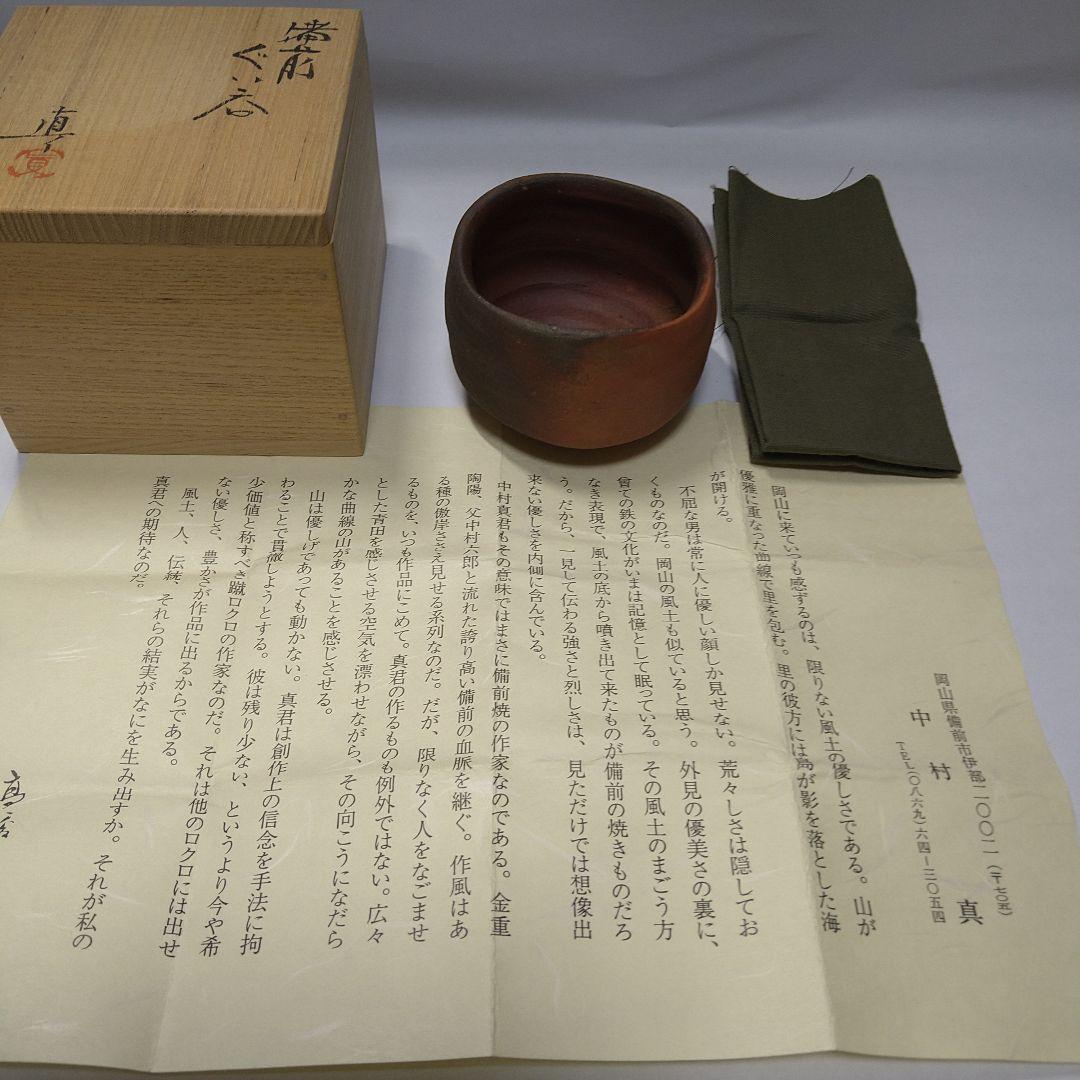 備前
ぐい呑
真
岡山県備前市伊部二〇〇一二(〒七〇五)
中村 真
TEL(〇八六九)六四-二〇五四
岡山に来ていつも感ずるのは、限りない風土の優しさである。山が
優雅に重なった曲線で里を包む。里の彼方には島が影を落とした海
が開ける。
不屈な男は常に人に優しい顔しか見せない。荒々しさは隠してお
くものなのだ。岡山の風土も似ていると思う。外見の優美さの裏に、
曾ての鉄の文化がいまは記憶として眠っている。その風土のまごう方
なき表現で、風土の底から噴き出て来たものが備前の焼きものだろ
う。だから、一見して伝わる強さと烈しさは、見ただけでは想像出
来ない優しさを内側に含んでいる。
中村真君もその意味ではまさに備前焼の作家なのである。金重
陶陽、父中村六郎と流れた誇り高い備前の血脈を継ぐ。作風はあ
る種の傲岸ささえ見せる系列なのだ。だが、限りなく人をなごませ
るものを、いつも作品にこめて。真君の作るものも例外ではない。広々
とした青田を感じさせる空気を漂わせながら、その向こうになだら
かな曲線の山があることを感じさせる。
山は優しげであっても動かない。真君は創作上の信念を手法に拘
わることで貫徹しようとする。彼は残り少ない、というより今や希
少価値と称すべき蹴ロクロの作家なのだ。それは他のロクロには出せ
ない優しさ、豊かさが作品に出るからである。
風土、人、伝統、それらの結実がなにを生み出すか。それが私の
真君への期待なのだ。